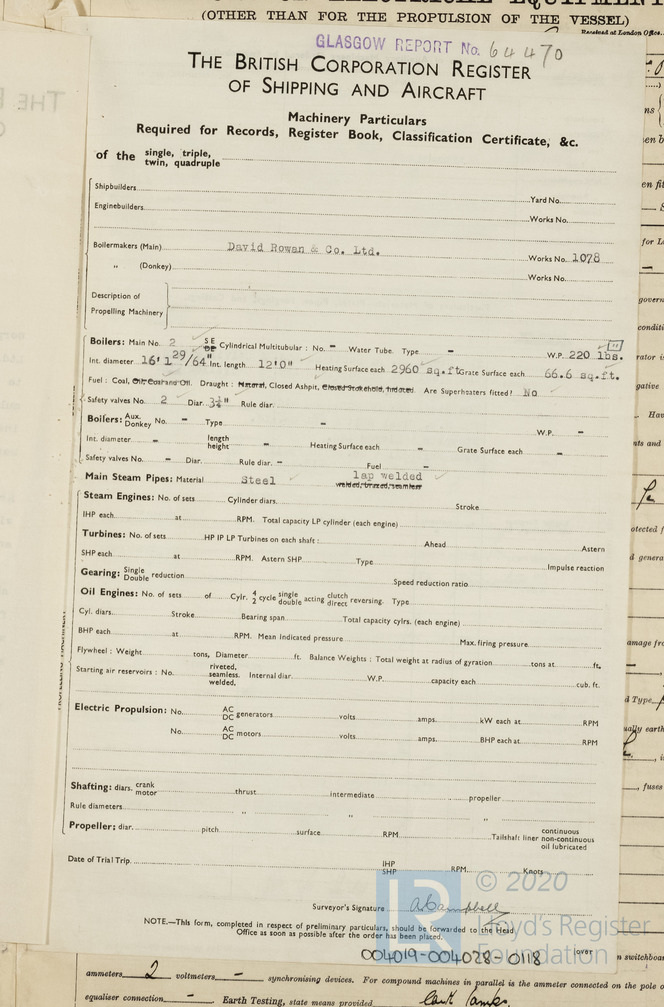 (OTHER THAN FOR THE PROPULSION OF THE VESSEL)
Received at London Office
GLASGOW REPORT No. 64470
THE BRITISH CORPORATION REGISTER
OF SHIPPING AND AIRCRAFT
Machinery Particulars
Required for Records, Register Book, Classification Certificate, &c.
of the single, triple,
twin, quadruple
Shipbuilders
Yard No.
Enginebuilders
Works No.
Boilermakers (Main) David Rowan & Co. Ltd. Works No. 1078
„ (Donkey)
Works No.
Description of
Propelling Machinery
Boilers: Main No. 2 SE DE Cylindrical Multitubular : No. - Water Tube. Type - W.P. 220 lbs.
Int. diameter 16'1 29/64" Int. length 12'0" Heating Surface each 2960 sq.ft Grate Surface each 66.6 sq.ft.
Fuel : Coal, Oil, Coal and Oil. Draught : Natural, Closed Ashpit, Closed Stokehold, Induced Are Superheaters fitted? No
Safety valves No. 2 Diar. 3¼" Rule diar.
Boilers: Aux. Donkey No. - Type - W.P. -
Int. diameter - length height - Heating Surface each - Grate Surface each -
Safety valves No. - Diar. Rule diar. - Fuel -
Main Steam Pipes: Material Steel lap welded
welded, brazed, seamless
Steam Engines: No. of sets Cylinder diars. Stroke
IHP each at RPM. Total capacity LP cylinder (each engine)
Turbines: No. of sets HP IP LP Turbines on each shaft : Ahead Astern
SHP each at RPM. Astern SHP Type Impulse reaction
Gearing: Single Double reduction Speed reduction ratio
Oil Engines: No. of sets of Cylr. 4 2 cycle single double acting clutch direct reversing. Type
Cyl. diars. Stroke Bearing span Total capacity cylrs. (each engine)
BHP each at RPM. Mean Indicated pressure Max. firing pressure
Flywheel : Weight tons, Diameter ft. Balance Weights : Total weight at radius of gyration tons at ft.
Starting air reservoirs : No. riveted, seamless, welded, Internal diar. W.P. capacity each cub. ft.
Electric Propulsion: No. AC DC generators volts amps. kW each at RPM
No. AC DC motors volts amps. BHP each at RPM
Shafting: diars. crank motor thrust intermediate propeller
Rule diameters „ „ „
Propeller: diar. pitch surface RPM Tailshaft liner continuous non-continuous oil lubricated
Date of Trial Trip IHP SHP RPM. Knots
Surveyor's Signature A Campbell
NOTE.—This form, completed in respect of preliminary particulars, should be forwarded to the Head
Office as soon as possible after the order has been placed.
[over
004019-004028-0118
© 2020
Lloyd's Register
Foundation
ammeters 2 voltmeters - synchronising devices. For compound machines in parallel is the ammeter connected on the pole o
equaliser connection - Earth Testing, state means provided